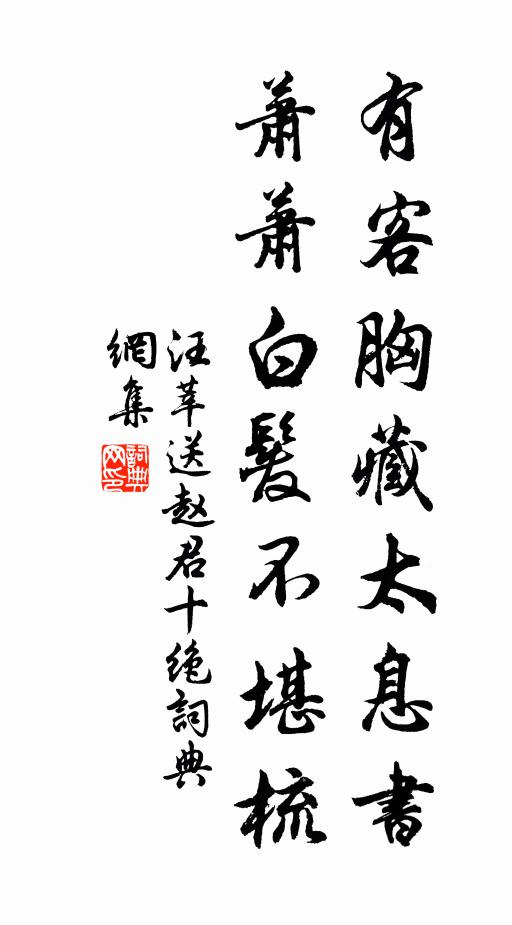 有客胸藏太息書
蕭蕭白髮不堪梳
汪莘送赵君十绝詞典
網集
詞典网印